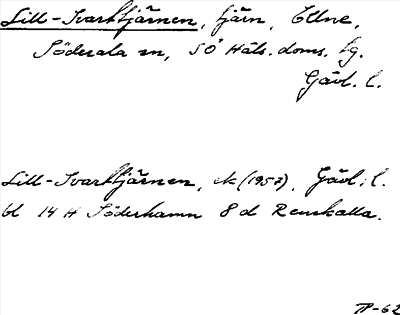 Lill-Svarttjärnen, tjärn, Ellne,
Söderala sn, SÖ Häls. doms. tg.
Gävl. l.
Lill-Svarttjärnen, ek (1957). Gävl. l.
bl 14 H Söderhamn 8 d Renskalla.
TP-62